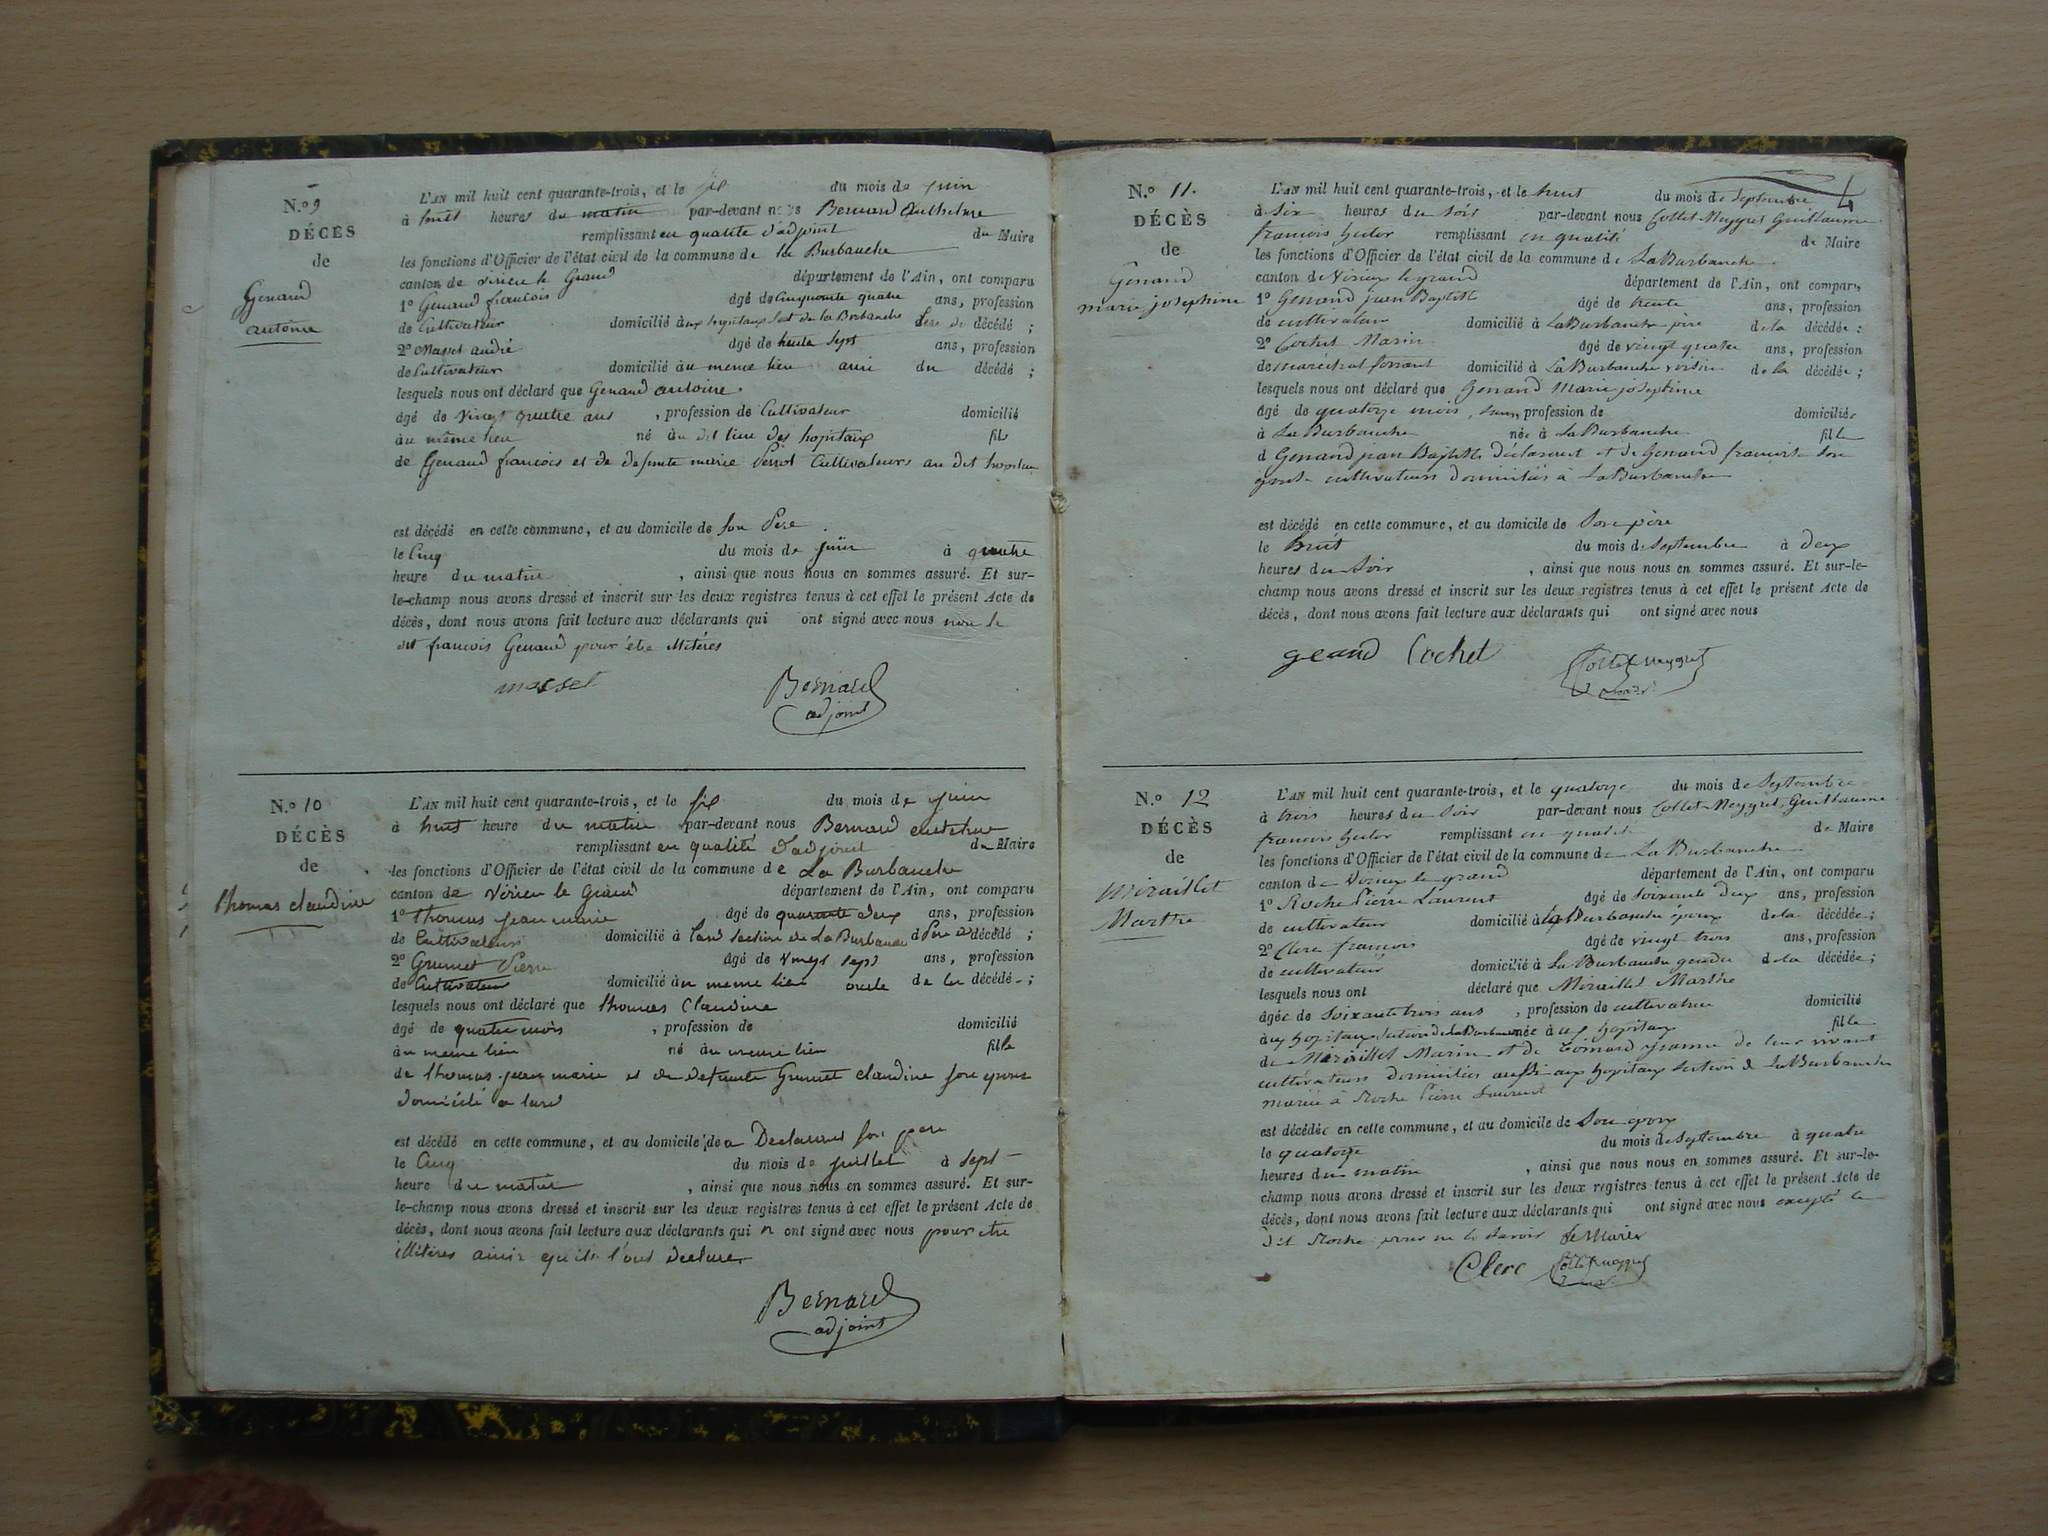 N.º 9
DÉCÈS
de
Genand
antoine
L'AN mil huit cent quarante-trois, et le six du mois de juin
à huit heures du matin par-devant nous Bernard Anthelme
remplissant en qualité d'adjoint du Maire
les fonctions d'Officier de l'état civil de la commune de la Burbanche
canton de virieu le Grand département de l'Ain, ont comparu
1º Genand francois âgé de Cinquante quatre ans, profession
de Cultivateur domicilié aux hopitaux Sect de la Burbanche Père du décédé ;
2º Masset andré âgé de trente sept ans, profession
de Cultivateur domicilié au meme lieu ami du décédé ;
lesquels nous ont déclaré que Genand antoine
âgé de vingt quatre ans , profession de Cultivateur domicilié
au même lieu né au dit lieu des hopitaux fils
de Genand francois et de defunte marie Perrot Cultivateurs au dit hopitau
est décédé en cette commune, et au domicile de son Pere
le Cinq du mois de juin à quatre
heure du matin , ainsi que nous nous en sommes assuré. Et sur-
le-champ nous avons dressé et inscrit sur les deux registres tenus à cet effet le présent Acte de
décès, dont nous avons fait lecture aux déclarants qui ont signé avec nous non le
dit francois Genand pour être illitéres
masset Bernard
adjoint
N.º 10
DÉCÈS
de
thomas claudine
L'AN mil huit cent quarante-trois, et le six du mois de juin
à huit heure du matin par-devant nous Bernard anthelme
remplissant en qualité d'adjoint du Maire
les fonctions d'Officier de l'état civil de la commune de La Burbanche
canton de Virieu le Grand département de l'Ain, ont comparu
1º thomas jean marie âgé de quarante deux ans, profession
de Cultivateur domicilié à section de La Burbanche Père de décédé ;
2º Grumet Pierre âgé de vingt sept ans, profession
de Cultivateur domicilié au meme lieu oncle de la décédé ;
lesquels nous ont déclaré que thomas Claudine
âgé de quatre mois , profession de domicilié
au meme lieu né au meme lieu fille
de thomas jean marie et de defunte Grumet claudine son epouse
domicilié a
est décédé en cette commune, et au domicile de a Declarant son pere
le Cinq du mois de juillet à sept
heure du matin , ainsi que nous nous en sommes assuré. Et sur-
le-champ nous avons dressé et inscrit sur les deux registres tenus à cet effet le présent Acte de
décès, dont nous avons fait lecture aux déclarants qui n ont signé avec nous pour etre
illitéres ainsi qu'ils l'ont declaré
Bernard
adjoint
4
N.º 11.
DÉCÈS
de
Genand
marie josephine
L'AN mil huit cent quarante-trois, et le huit du mois de Septembre
à six heures du soir par-devant nous Collet-Meygret Guillaume
francois hector remplissant en qualité de Maire
les fonctions d'Officier de l'état civil de la commune de La Burbanche
canton de Virieux le grand département de l'Ain, ont comparu
1º Genand jean Baptiste âgé de trente ans, profession
de cultivateur domicilié à La Burbanche père de la décédée ;
2º Cochet Marin âgé de vingt quatre ans, profession
de marechal ferrant domicilié à La Burbanche voisin de la décédée ;
lesquels nous ont déclaré que Genand Marie josephine
âgé de quatorze mois, sans profession de domiciliée
à La Burbanche née à La Burbanche fille
d Genand jean Baptiste déclarant et de Genand francoise son
epouse cultivateurs domiciliés à La Burbanche
est décédé en cette commune, et au domicile de Son père
le huit du mois de Septembre à deux
heures du Soir , ainsi que nous nous en sommes assuré. Et sur-le-
champ nous avons dressé et inscrit sur les deux registres tenus à cet effet le présent Acte de
décès, dont nous avons fait lecture aux déclarants qui ont signé avec nous
geand Cochet Collet Meygret
N.º 12
DÉCÈS
de
Miraillet
Marthe
L'AN mil huit cent quarante-trois, et le quatorze du mois de Septembre
à trois heures du Soir par-devant nous Collet-Meygret, Guillaume
francois hector remplissant en qualité de Maire
les fonctions d'Officier de l'état civil de la commune de La Burbanche
canton de Virieux le grand département de l'Ain, ont comparu
1º Roche Pierre Laurent âgé de soixante deux ans, profession
de cultivateur domicilié à la Burbanche époux de la décédée ;
2º Clerc francois âgé de vingt trois ans, profession
de cultivateur domicilié à La Burbanche gendre de la décédée ;
lesquels nous ont déclaré que Miraillet Marthe
âgée de soixante trois ans , profession de cultivatrice domicilié
aux hopitaux section de la Burbanche née à aux hopitaux fille
de Miraillet Marin et de jeanne de leur vivant
cultivateurs domiciliés aussi aux hopitaux section de La Burbanche
mariée à Roche Pierre Laurent
est décédée en cette commune, et au domicile de Son époux
le quatorze du mois de Septembre à quatre
heures du matin , ainsi que nous nous en sommes assuré. Et sur-le-
champ nous avons dressé et inscrit sur les deux registres tenus à cet effet le présent Acte de
décès, dont nous avons fait lecture aux déclarants qui ont signé avec nous excepté le
dit Roche pour ne le savoir
Clerc Collet Meygret